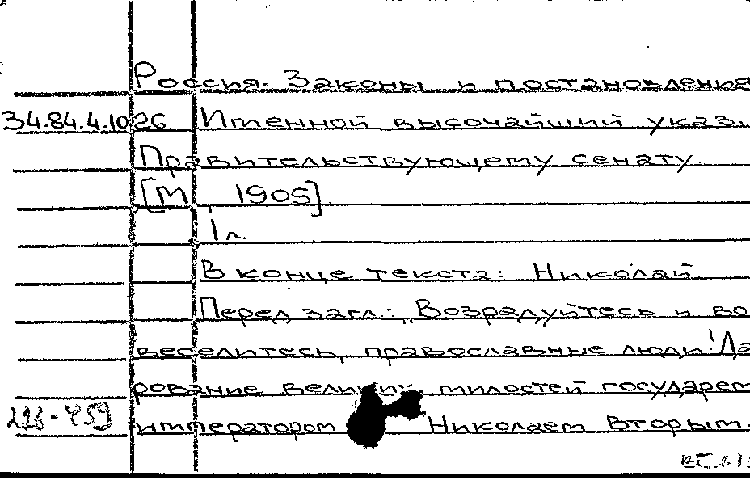 Россия. Законы и постановление
34.84.4.1026 Именной высочайший указ.
Правительствующему сенату.
[М., 1905]
1 л.
В конце текста: Николай
Перед загл.: Возрадуйтесь и во
веселитесь, православные люди! Да
рование великих милостей государем
императором Николаем Вторым.